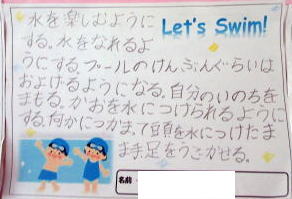 水を楽しむように
Let's Swim!
する。水をなれるよ
うにする。プールのけんぶんぐらいは
およげるようになる。自分のいのちを
まもる。かおを水につけられるように
する。何かにつかまって頭を水につけたま
ま手足をうごかせる。
名前